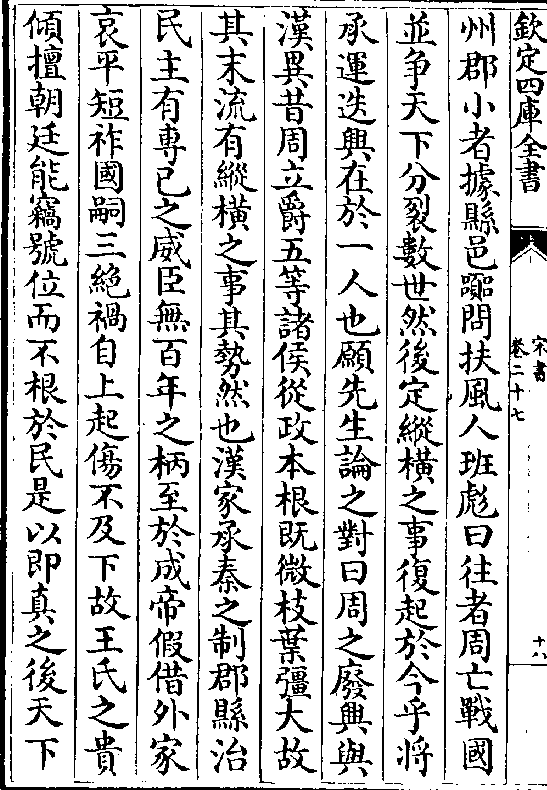 欽定四庫全書
宋書
卷二十七
十八
州郡小者據縣邑嚻問扶風人班彪曰往者周亡戰國
並争天下分裂數世然後定縱橫之事復起於今乎將
承運迭興在於一人也願先生論之對曰周之廢興與
漢異昔周立爵五等諸侯從政本根既微枝葉彊大故
其末流有縱橫之事其勢然也漢家承秦之制郡縣治
民主有專己之威臣無百年之柄至於成帝假借外家
哀平短祚國嗣三絶禍自上起傷不及下故王氏之貴
傾擅朝廷能竊號位而不根於民是以即真之後天下